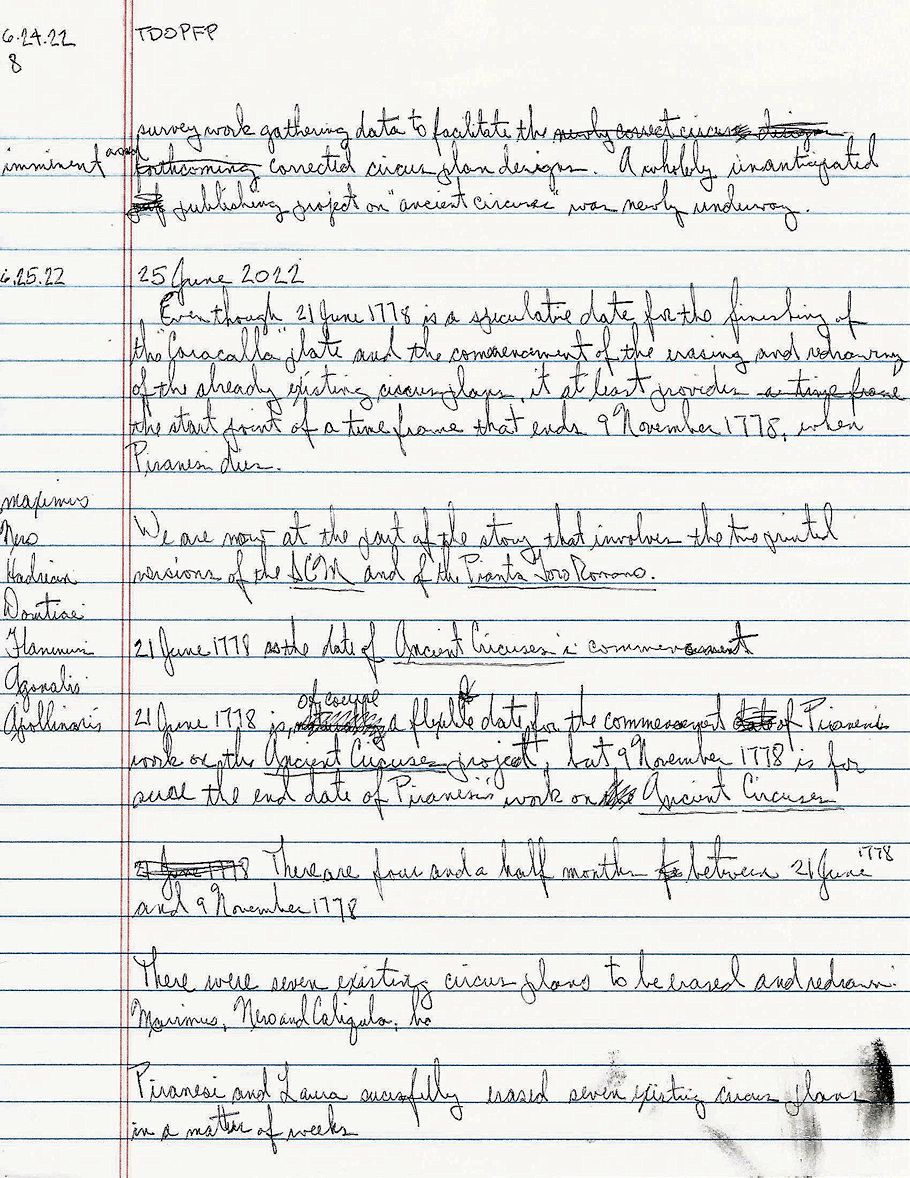 6.24.22 TDOPFP
8
survey work gathering data to facilitate the newly correct circus design
imminent and forthcoming corrected circus plan designs. A wholely unanticipated
publishing project on "ancient circuses" was newly underway.
6.25.22 25 June 2022
Even though 21 June 1778 is a speculative date for the finishing of
the "Caracalla" plate and the commencement of the erasing and redrawing
of the already existing circus plans, it at least provides a time frame
the start point of a time frame that ends 9 November 1778, when
Piranesi dies.
Maximus
Nero We are now at the part of the story that involves the two printed
Hadrian versions of the SCM and of the Pianta Foro Romano.
Domtiae
Flaminii 21 June 1778 as the date of Ancient Circuses i commencement
Agonalis of course
Apollinaris 21 June 1778 is, a flexible date for the commencement date of Piranesi's
work on the Ancient Circuses project, but 9 November 1778 is for
sure the end date of Piranesi's work on the Ancient Circuses
21 June 1778 There are four and a half months between 21 June 1778
and 9 November 1778
There were seven existing circus plans to be erased and redrawn:
Maximus, Nero and Caligula, ha
Piranesi and Laura sucessfully erased seven existing circus plans
in a matter of weeks